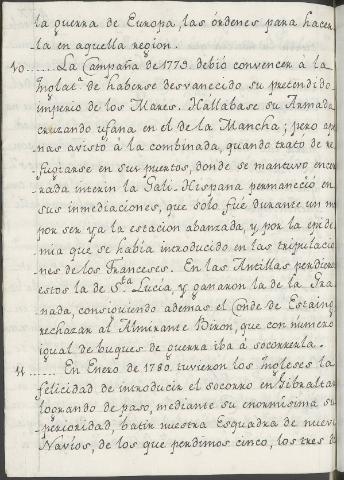 la guerra de Europa, las órdenes para hacer-
la en aquella region.
10...... La Campaña de 1779 debió convencer à la
Inglatª. de haberse desvanecido su pretendido
imperio de los Mares. Hallabase su Armada
cruzando ufana en el de la Mancha; pero ape
nas avistó à la combinada, quando trató de re
fugiarse en sus puertos, donde se mantuvo encer
rada interin la Gali-Hispana permaneció en
sus inmediaciones, que solo fué durante un m
por ser ya la estacion abanzada, y por la epide
mia que se había introducido en las tripulacio
nes de los Franceses. En las Antillas perdieron
estos la de Sta. Lucia y ganaron la de la Gra
nada, consiguiendo ademas el Conde de Estaing
rechazar al Almirante Biron, que con numero
igual de buques de guerra iba á socorrerla.
11...... En Enero de 1780. tuvieron los Ingleses la
felicidad de introducir el socorro en Gibraltar
logrando de paso, mediante su enormisima su
perioridad, batir nuestra Esquadra de nueve
Navíos, de los que perdimos cinco, los tres de